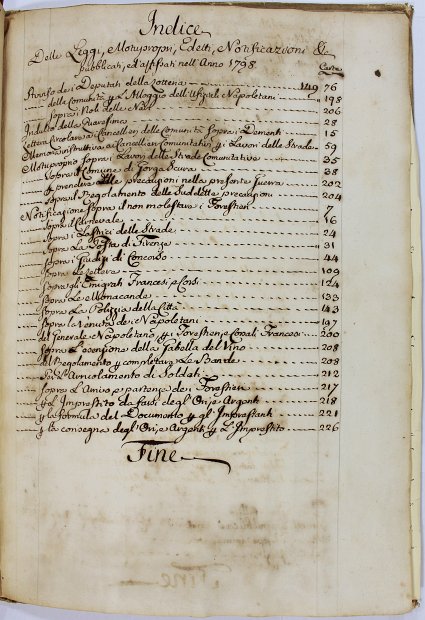 Indice
Delle Leggi, Motuproprj, Editti, Notificazioni &
pubblicati, ed affissati nell'Anno 1798.
Carte
de i Deputati della Lotteria 149 76
delle comunità p l'Alloggio dell'Ufizieli Napoletani 198
sopra i Noli delle Navi 206
Indulto della Quaresima 28
Lettera Circolare a i Cancellieri delle Comunità sopra i Dementi 15
Memorie Instruttiva a i Cancellieri Comunitativi p i Lavori delle Strade 59
Motuproprio sopra i Lavori delle Strade Comunitative 35
sopra il Comune di Gorga Scura 38
p prendere alle precauzioni nella presente Guerra 202
sopra il Regolamento delle Suddette precauzioni 204
Notificazione sopra il non molestare i Forestieri 7
sopra il Carnevale 16
sopra i Lastrici delle Strade 24
sopra La Posta di Firenze 31
sopra i Giudizi di Concorso 44
sopra Le Lettere 109
sopra gli Emigrati Francesi, e Corsi 124
sopra Le Monacande 133
sopra La Polizzia della Città 143
sopra la Venuta de i Napoletani 197
del Generale Napoletano p i Forestieri, e Conali Francesi 200
sopra L'esenzione della Gabella del Vino 208
del Regolamento p completare Le Bande 208
p L'Arrolamento di Soldati 212
sopra L'Arrivo e partenza dei Forestieri 217
p L'Imprestito da farsi degl'Ori, e Argenti 218
p la formula del Documento p gl'Imprestanti 221
p la consegna degl'Ori, e Argenti p L'Imprestito 226
Fine